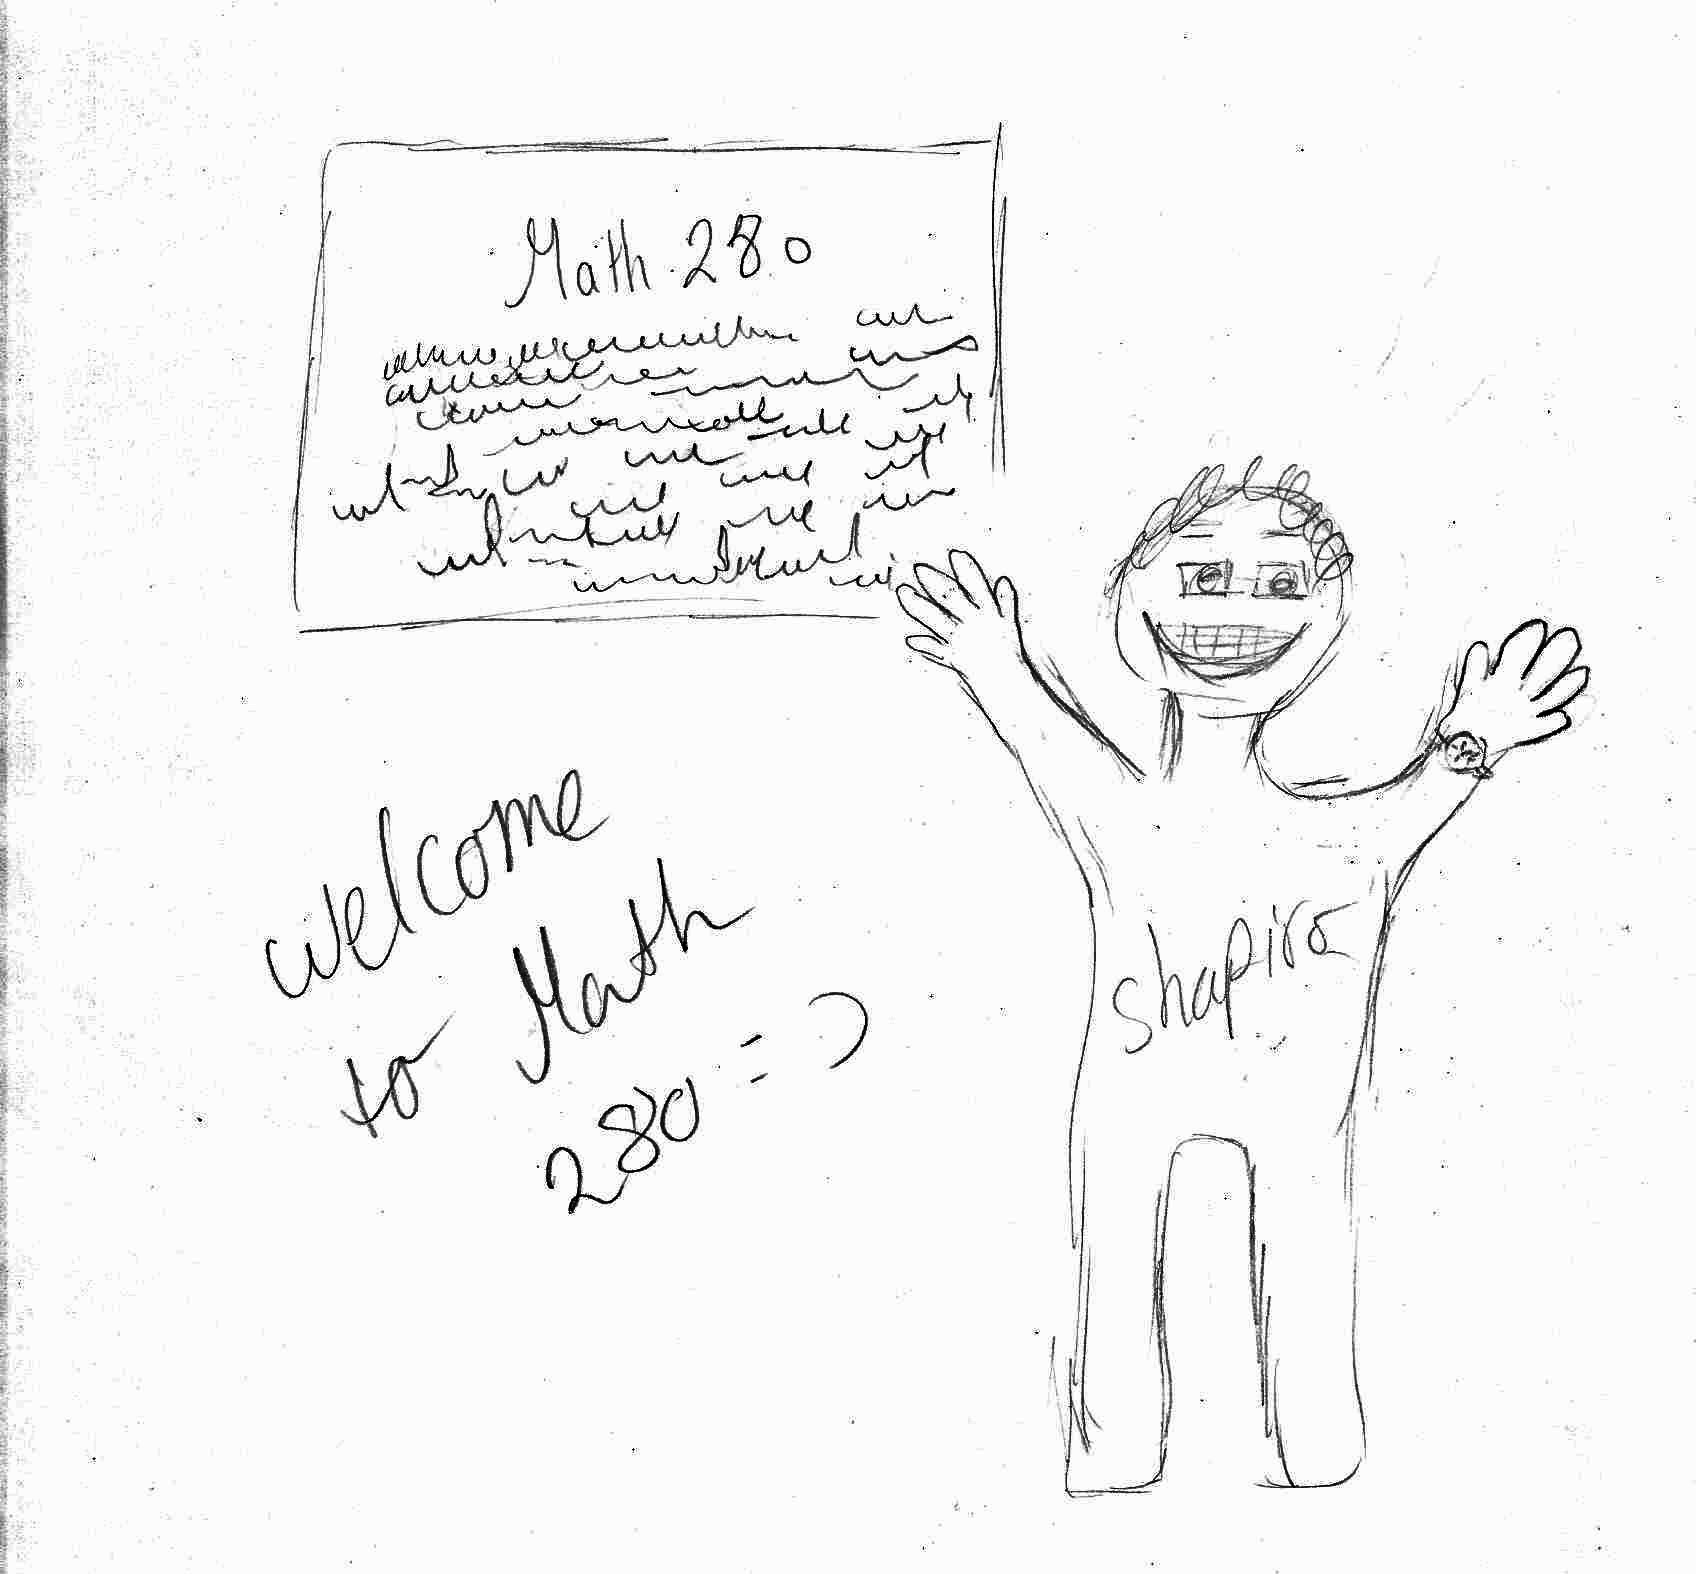 Math 280
welcome
to Math
280 =)
Shapiro